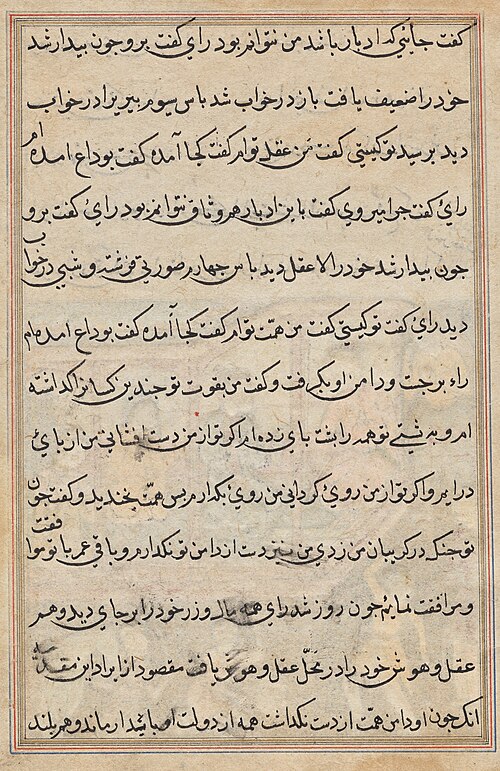 کفت جائی که ادبار باشد من نتوانم بود رای کفت برو جون بیدار شد
خود را ضعیف یافت باز در خواب شد باس سیوم پیر برا در خواب
دید برسید تو کیستی کفت من عقل توام کفت کجا آمده کفت بوداع امده ام
رای کفت جرا میروی کفت با این ادبار هم وثاق نتوانم بود رای کفت برو
جون بیدار شد خود را لا عقل دید باس جهارم صورتی فرشته وشی در خواب
دید رای کفت تو کیستی کفت من همت توام کفت کجا آمده کفت بوداع امده ام
رای برجست و دامن او بکرفت و کفت من بقوت تو جندین کسانرا کذاشته
ام و به بشتی تو همه را بشت بای زده ام اکر تو از من دست افشانی من از بای
در ایم و اکر تو از من روی کردانی من روی بکه ارم بس همت بخندید و کفت جون
تو جنک در کریبان من زدی من نیز دست از دامن تو نکدارم و باقی عمر با تو موافقت
و مرافقت نمایم جون روز شد رای همه مال و زر خود را بر جای دید و هم
عقل و هوش خود را در محل عقل و هوش یافت مقصود از ایراد این مقدمه
انک جون او دامن همت از دست نکداشت همه از دولت او باشد ار ماند و هم بلند